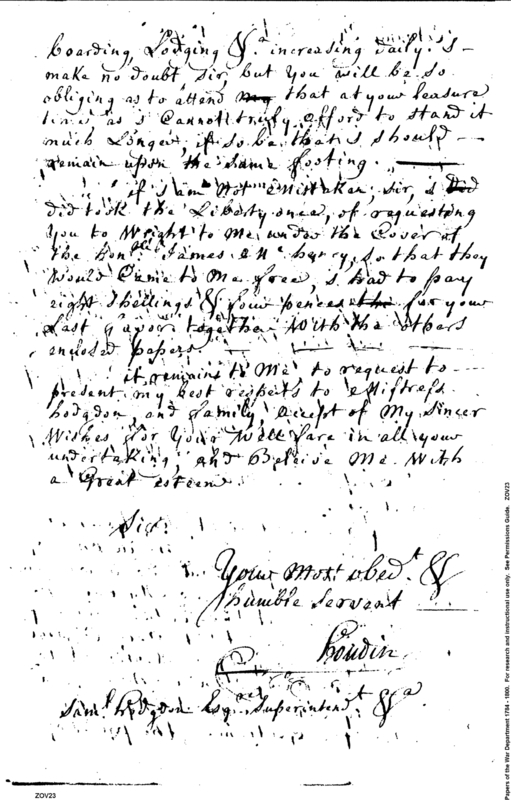 boarding, Lodging &a. increasing daily. I
make no doubt, Sir, but you will be so
obliging as to attend my that at your leasure
time as I Cannot truly afford to stand it
much Longer, if so be that I should
remain upon the same footing.
if I am Not Mistaken, Sir, I Did
did took the Liberty once, of requesting
you to Wright to Me under the Cover of
the honble James McHenry, so that they
Would Came to Me free, I had to pay
eight shellings & four pences the for your
Last favor together With the others
enclosed papers.
it remains to Me to request to
present my best respects to Mistress
hodgdon, and family, accept of My Sincer
Wishes for Your Well fare in all your
undertaking, and Beleive Me With
a Great esteem
Sir.
Your Most obedt. &
humble Servent
houdin
Saml. Hodgdon Esqre. Superintendt. &a
ZOV23
Papers of the War Department 1784 - 1800. For research and instructional use only. See Permissions Guide. ZOV23